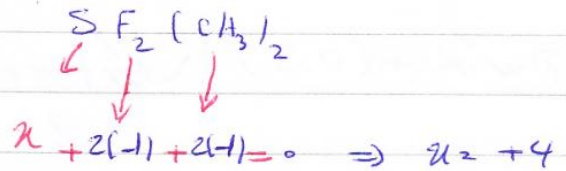 SF₂(CH₃)₂
x + 2(-1) + 2(-1) = 0 ⇒ x = +4